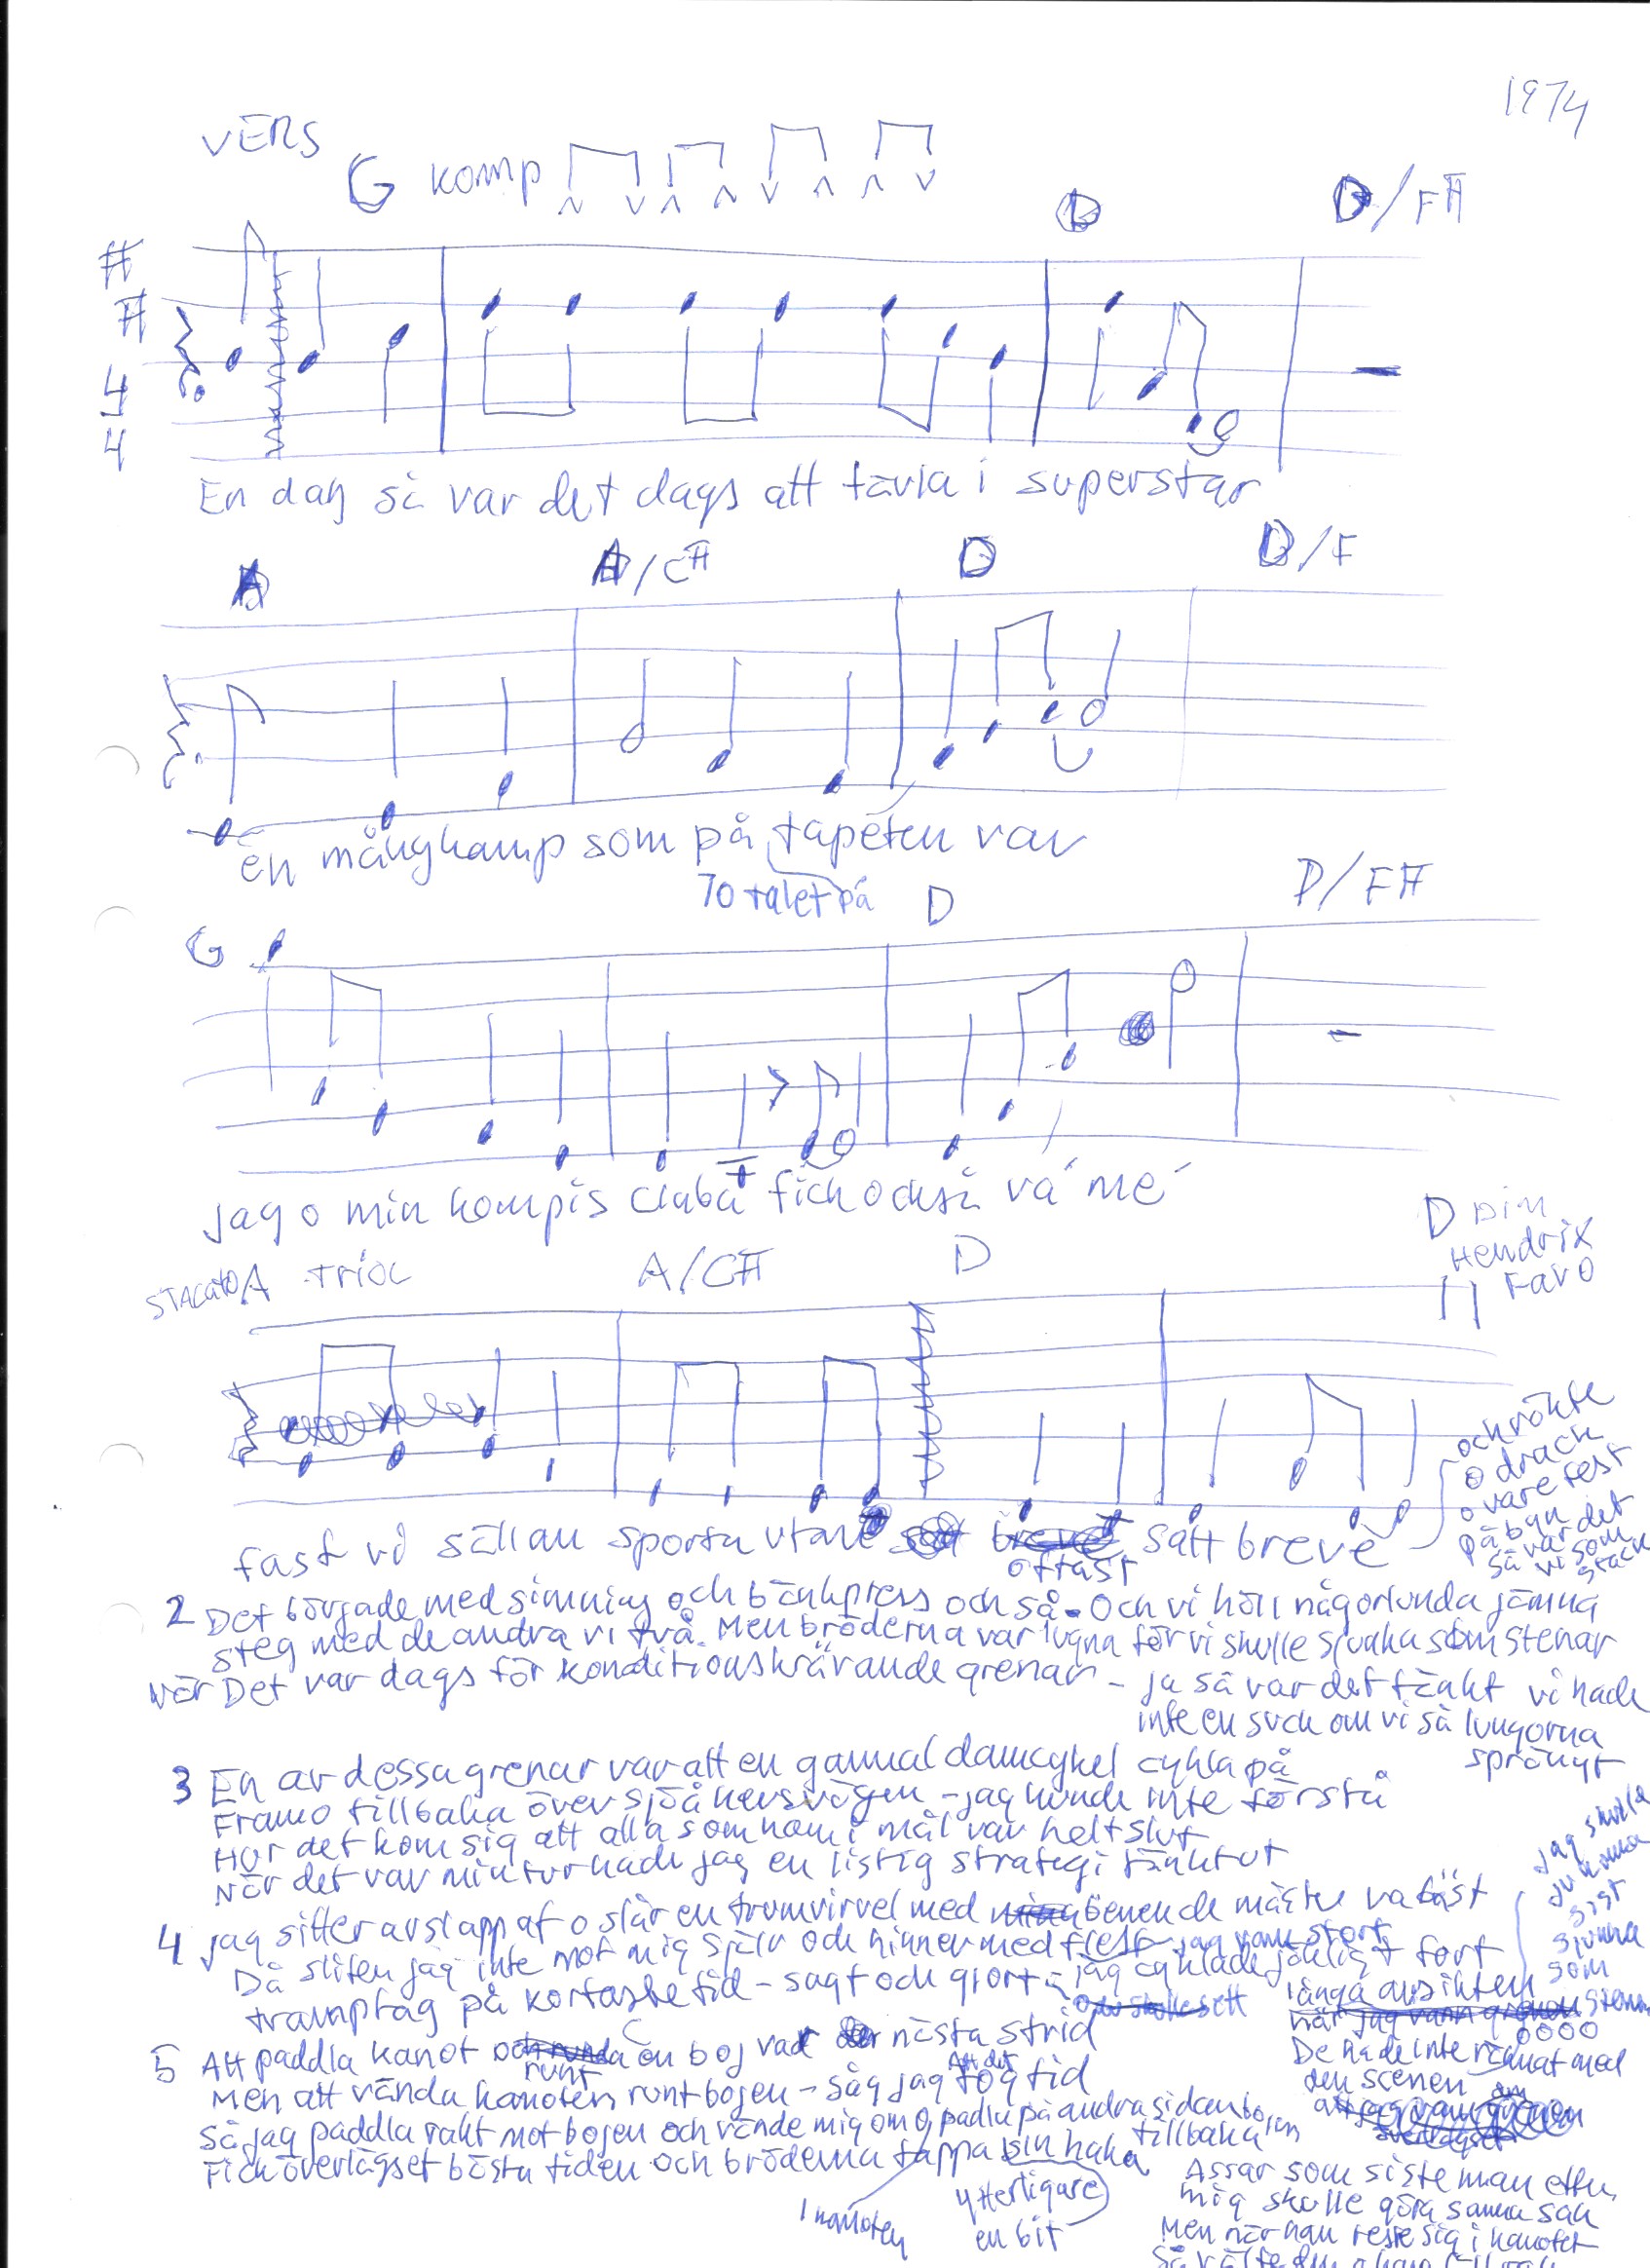 1974
VERS
G komp
D D/F#
4
4
En dag så var det dags att tävla i superstar
A A/C# D D/F
en mångkamp som på tapeten var
70 talet på
G D D/F#
jag o min kompis fick också va' me'
STACATO A TRIOL A/C# D D DIM
HENDRIX
FAVO
fast vi sällan sporta utan oftast satt breve
och rökte
o drack
o vare fest
på byn
så var det
vi som
stack
2 Det började med simning och bänkpress och så. Och vi höll någorlunda jämna
steg med de andra vi två. Men bröderna var lugna för vi skulle sjunka som stenar
när Det var dags för konditionskrävande grenar - ja så var det tänkt vi hade
inte en suck om vi så lungorna
sprängt
3 En av dessa grenar var att en gammal damcykel cykla på
Fram o tillbaka över - jag kunde inte förstå
Hur det kom sig att alla som kom i mål var helt slut
När det var min tur hade jag en listig strategi tänkt ut
4 jag sitter avslappaf o slår en trumvirvel med benen de måste va bäst
Då sliten jag inte mot mig själv och hinner med flest jag vann stort
tramptag på kortaste tid - sagt och gjort - jag cyklade jäkligt fort
jag skulle
ju
sist
sjunka
som
stenar
långa ansikten
när jag vann grenen
0000
De hade inte räknat med
den scenen
5 Att paddla kanot runt en boj var nästa strid
Men att vända kanoten runt bojen - såg jag att det tog tid
Så jag paddla rakt mot bojen och vände mig om o padla på andra sidan bojen
tillbaka
Fick överlägset bästa tiden och bröderna tappa sin haka
I kanoten
ytterligare
en bit
Assar som siste man efter
mig skulle göra samma sak
Men när han reste sig i kanoten